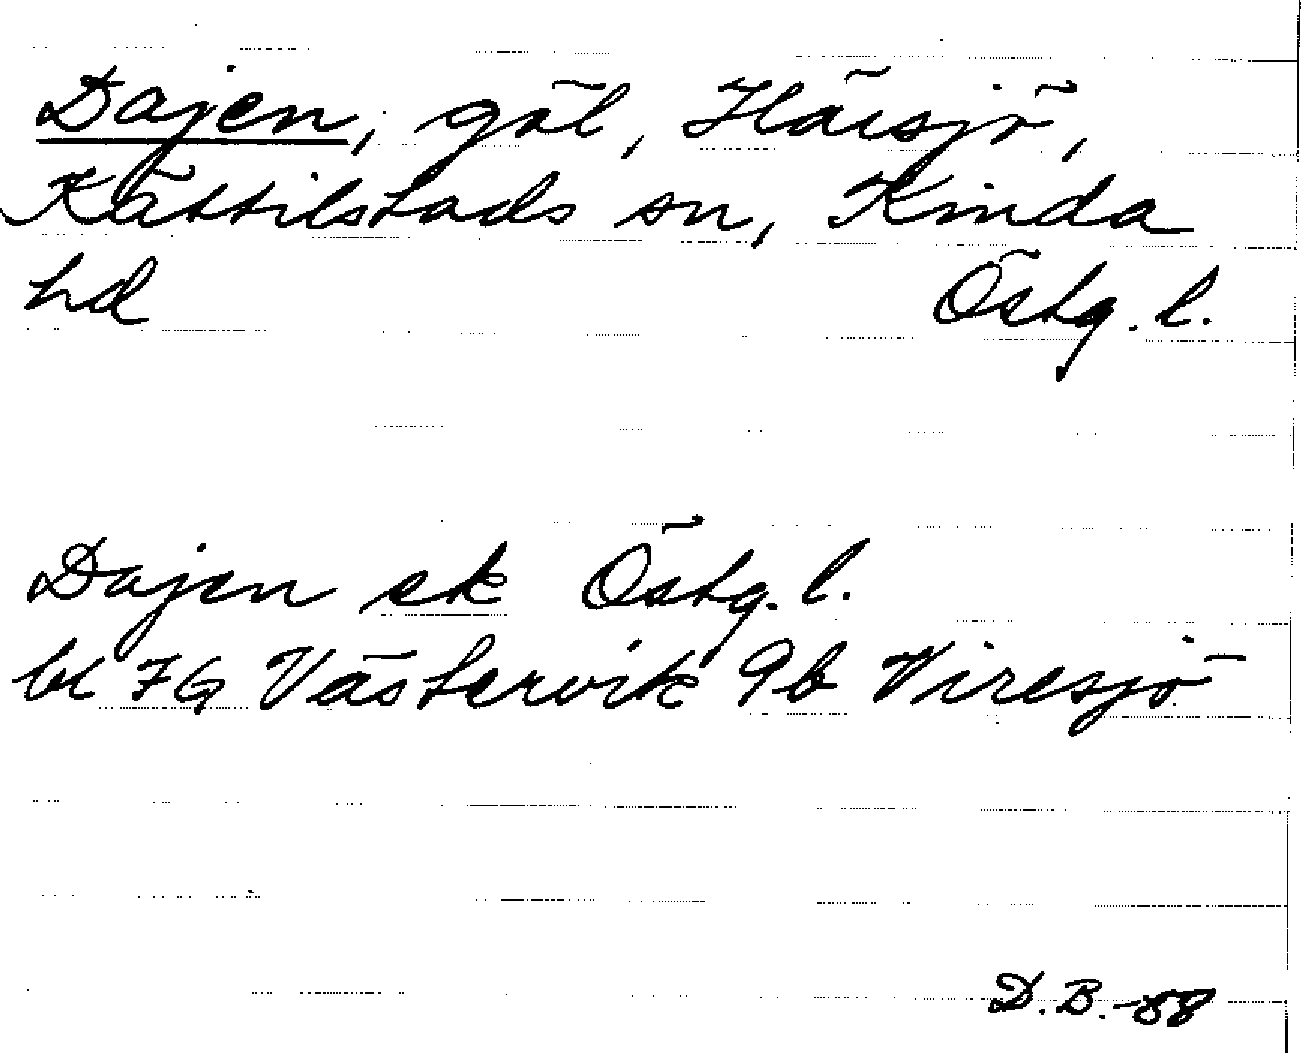 Dajen, göl, Härsjö,
Kättilstads sn, Kinda
hd Östg. l.
Dajen ek Östg. l.
bl 7G Västervik 9b Viresjö
D.B.-88